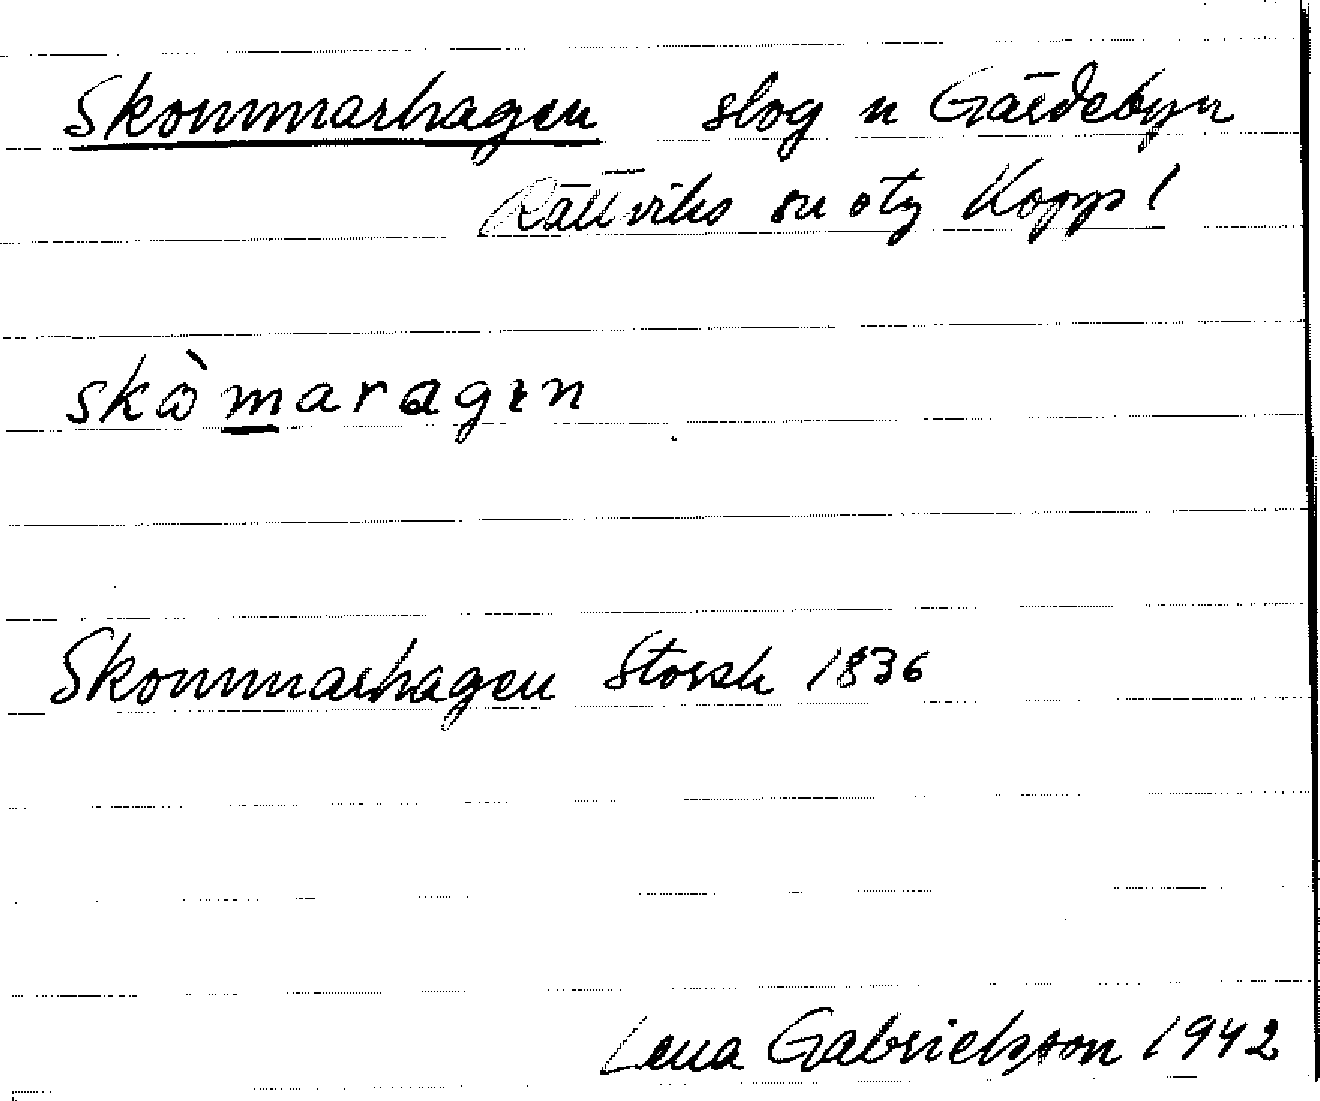 Skommarhagen slog n Gärdebyn
Rättviks sn otg Kopp l
skò̀maragɩn
Skommarhagen Storsk 1836
Lena Gabrielsson 1942